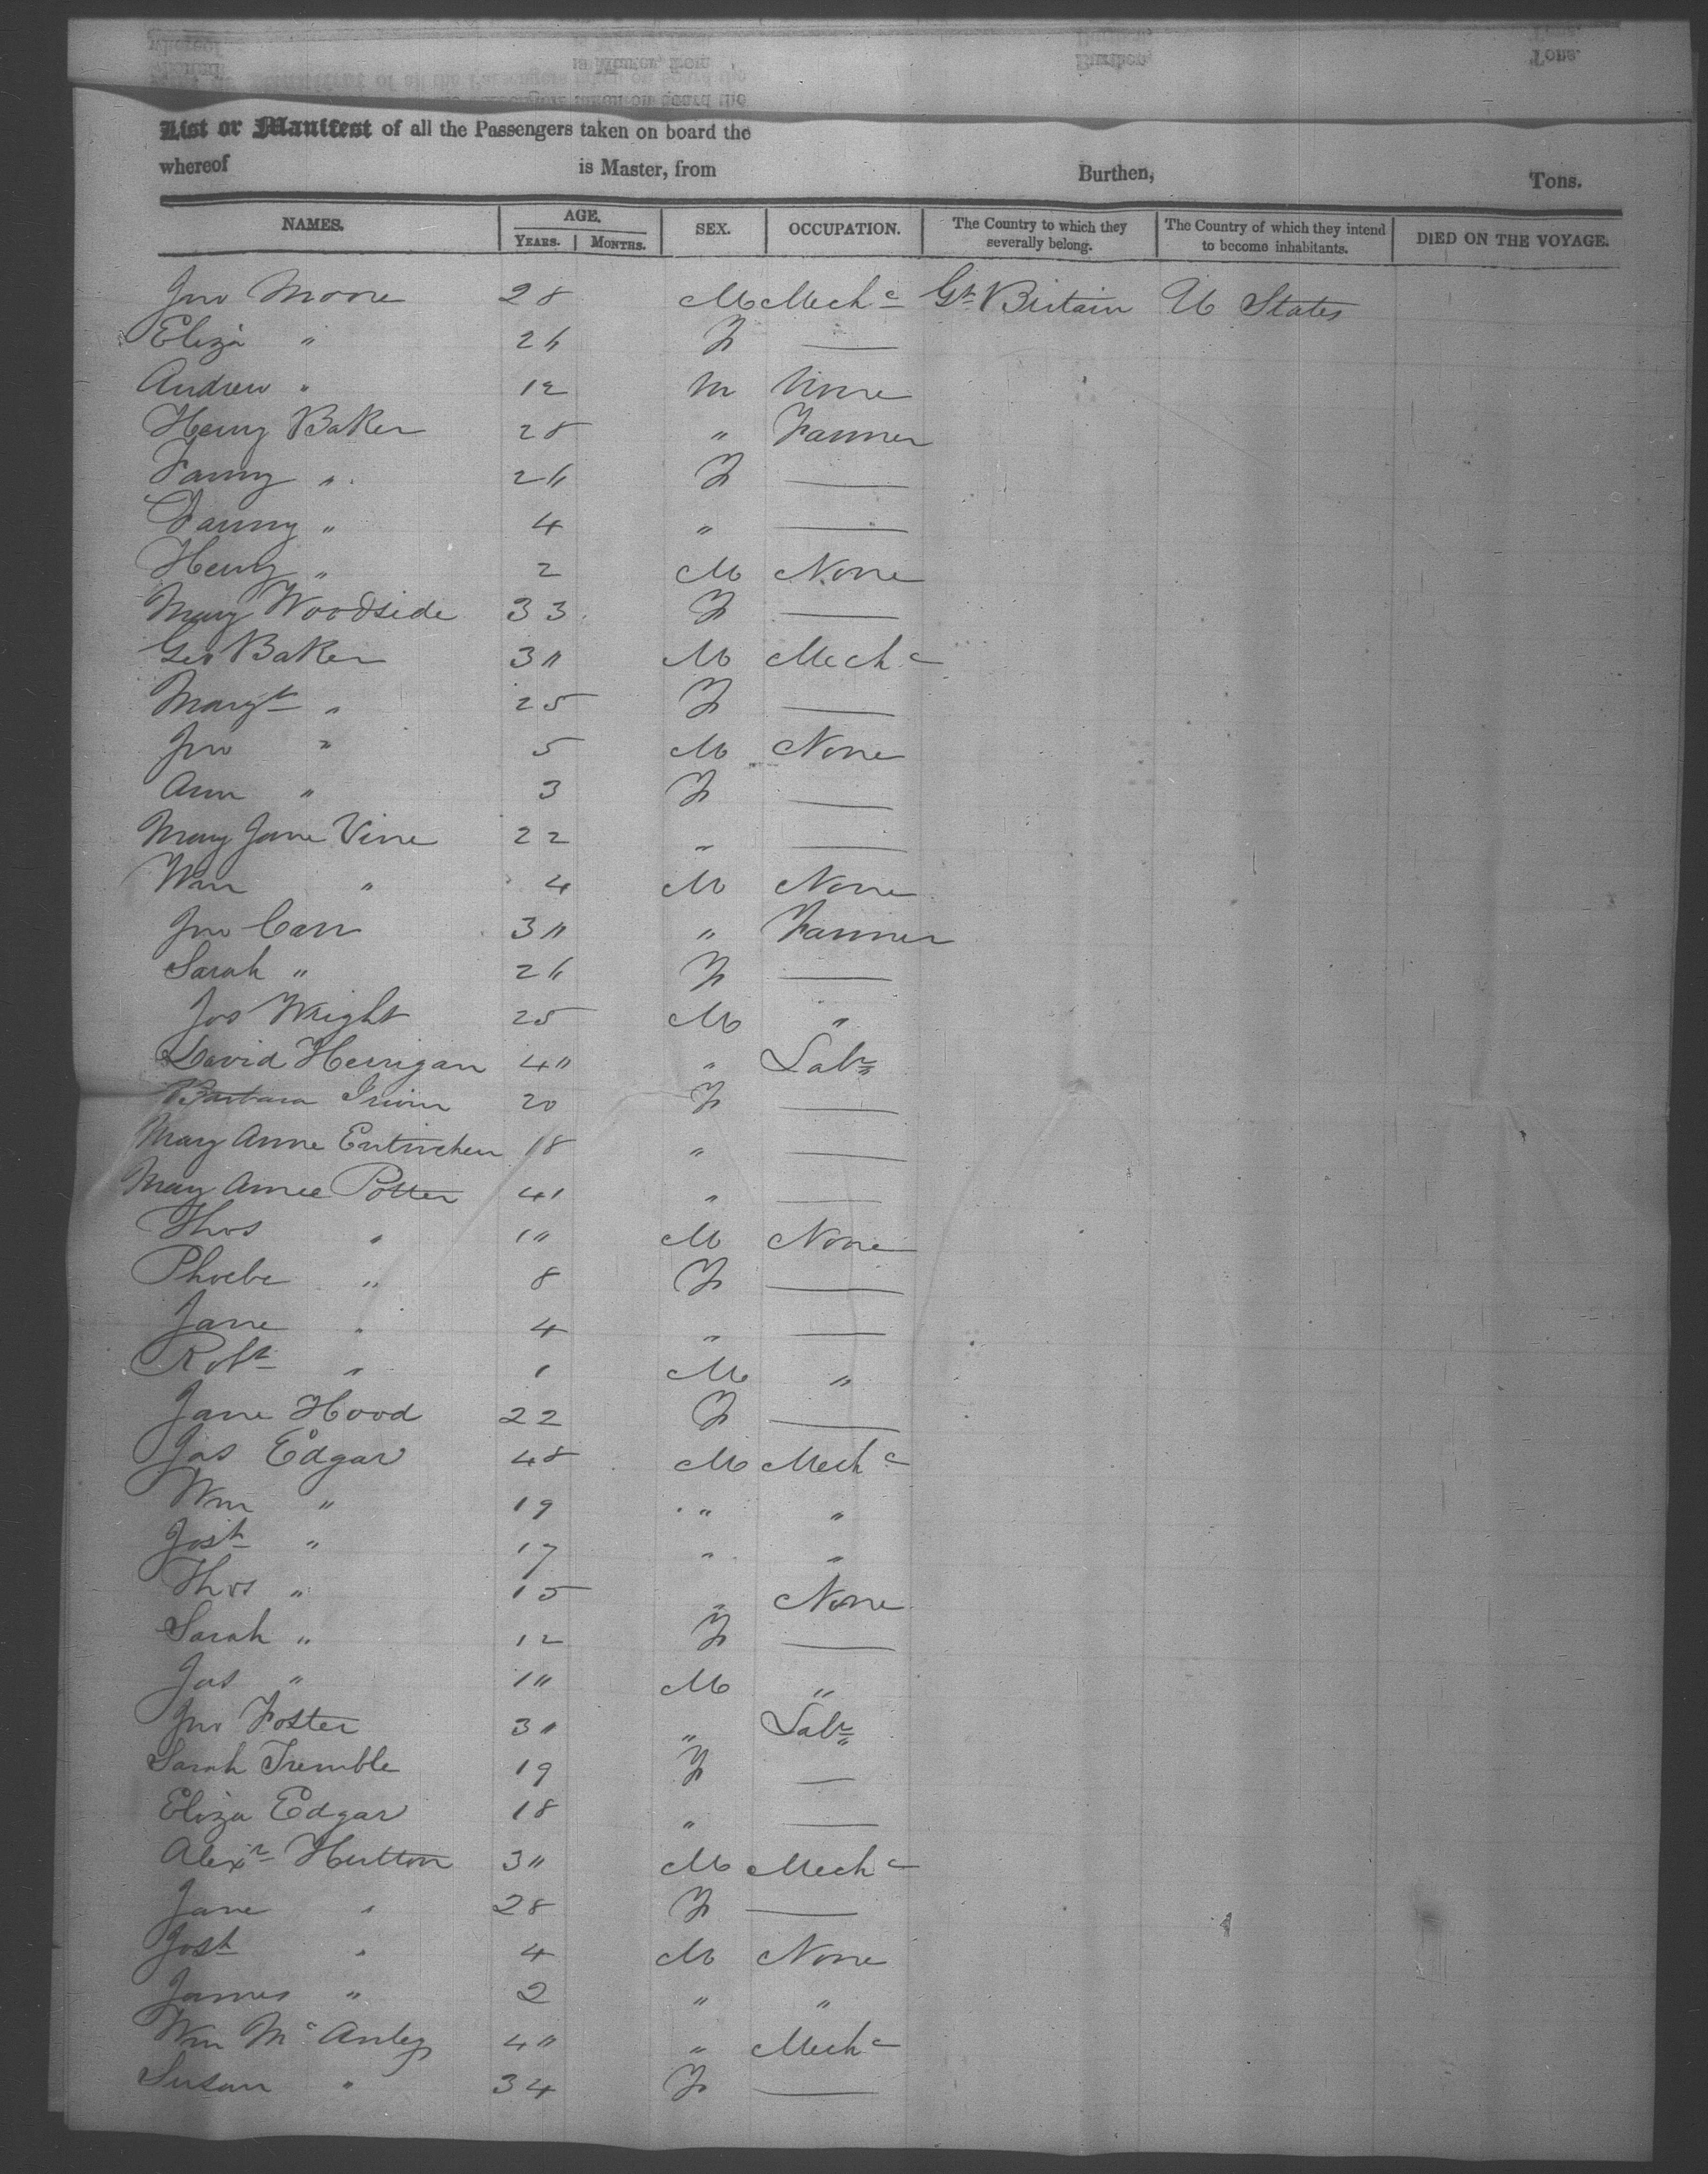 List or Manifest of all the Passengers taken on board the
whereof is Master, from Burthen, Tons.
NAMES. AGE. SEX. OCCUPATION. The Country to which they severally belong. The Country of which they intend to become inhabitants. DIED ON THE VOYAGE.
YEARS. MONTHS.
Jno Moore 28 M Mechc Gt Britain U States
Eliza " 26 F —
Andrew " 12 M None
Henry Baker 28 " Farmer
Fanny " 26 F —
Fanny " 4 " —
Henry " 2 M None
Mary Woodside 33 F —
Geo Baker 3" M Mechc
Margt " 25 F —
Jno " 5 M None
Ann " 3 F —
Mary Jane Vine 22 " —
Wm " 4 M None
Jno Carr 3" " Farmer
Sarah " 26 F —
Jos Wright 25 M "
David Herrigan 4" " Labr
Barbara Irwin 20 F —
Mary Anne 18 " —
Mary Potter 41 " —
Thos " 1" M None
Phoebe " 8 F —
Jane " 4 " —
Robt " 1 M "
Jane Hood 22 F —
Jas Edgar 48 M Mechc
Wm " 19 " "
Josh " 17 " "
Thos " 15 " None
Sarah " 12 F —
Jas " 1" M "
Jno Foster 3" " Labr
Sarah Tremble 19 F —
Eliza Edgar 18 " —
Alexr Hutton 3" M Mechc
Jane " 28 F —
Josh " 4 M None
James " 2 " "
Wm 4" " Mechc
Susan " 34 F —